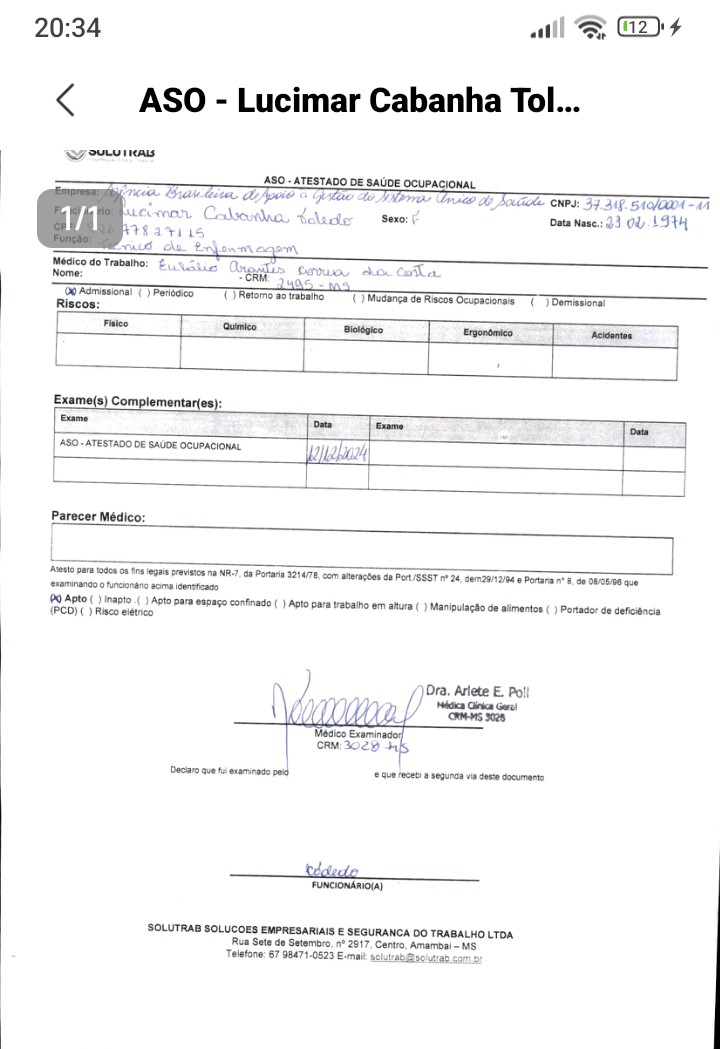 20:34
12
ASO - Lucimar Cabanha Tol...
SOLUTRAB
ASO - ATESTADO DE SAÚDE OCUPACIONAL
Empresa: Agência Brasileira de Apoio a Gestão do Sistema Único de Saúde CNPJ: 37.318.510/0001-11
1/1
Lucimar Cabanha Toledo Sexo: F Data Nasc.: 23.02.1974
77827115
Função: Técnico de Enfermagem
Médico do Trabalho: Eulálio Arantes Correa da Costa
Nome: - CRM: 2495-MS
(X) Admissional ( ) Periódico ( ) Retorno ao trabalho ( ) Mudança de Riscos Ocupacionais ( ) Demissional
Riscos:
Físico Químico Biológico Ergonômico Acidentes
Exame(s) Complementar(es):
Exame Data Exame Data
ASO - ATESTADO DE SAÚDE OCUPACIONAL 12/12/2024
Parecer Médico:
Atesto para todos os fins legais previstos na NR-7, da Portaria 3214/78, com alterações da Port./SSST nº 24, dern29/12/94 e Portaria nº 8, de 08/05/96 que
examinando o funcionário acima identificado
(X) Apto ( ) Inapto .( ) Apto para espaço confinado ( ) Apto para trabalho em altura ( ) Manipulação de alimentos ( ) Portador de deficiência
(PCD) ( ) Risco elétrico
Dra. Arlete E. Poll
Médica Clínica Geral
CRM-MS 3028
Médico Examinador
CRM: 3028 MS
Declaro que fui examinado pelo e que recebi a segunda via deste documento
Toledo
FUNCIONÁRIO(A)
SOLUTRAB SOLUCOES EMPRESARIAIS E SEGURANCA DO TRABALHO LTDA
Rua Sete de Setembro, nº 2917, Centro, Amambai – MS
Telefone: 67 98471-0523 E-mail: solutrab@solutrab.com.br